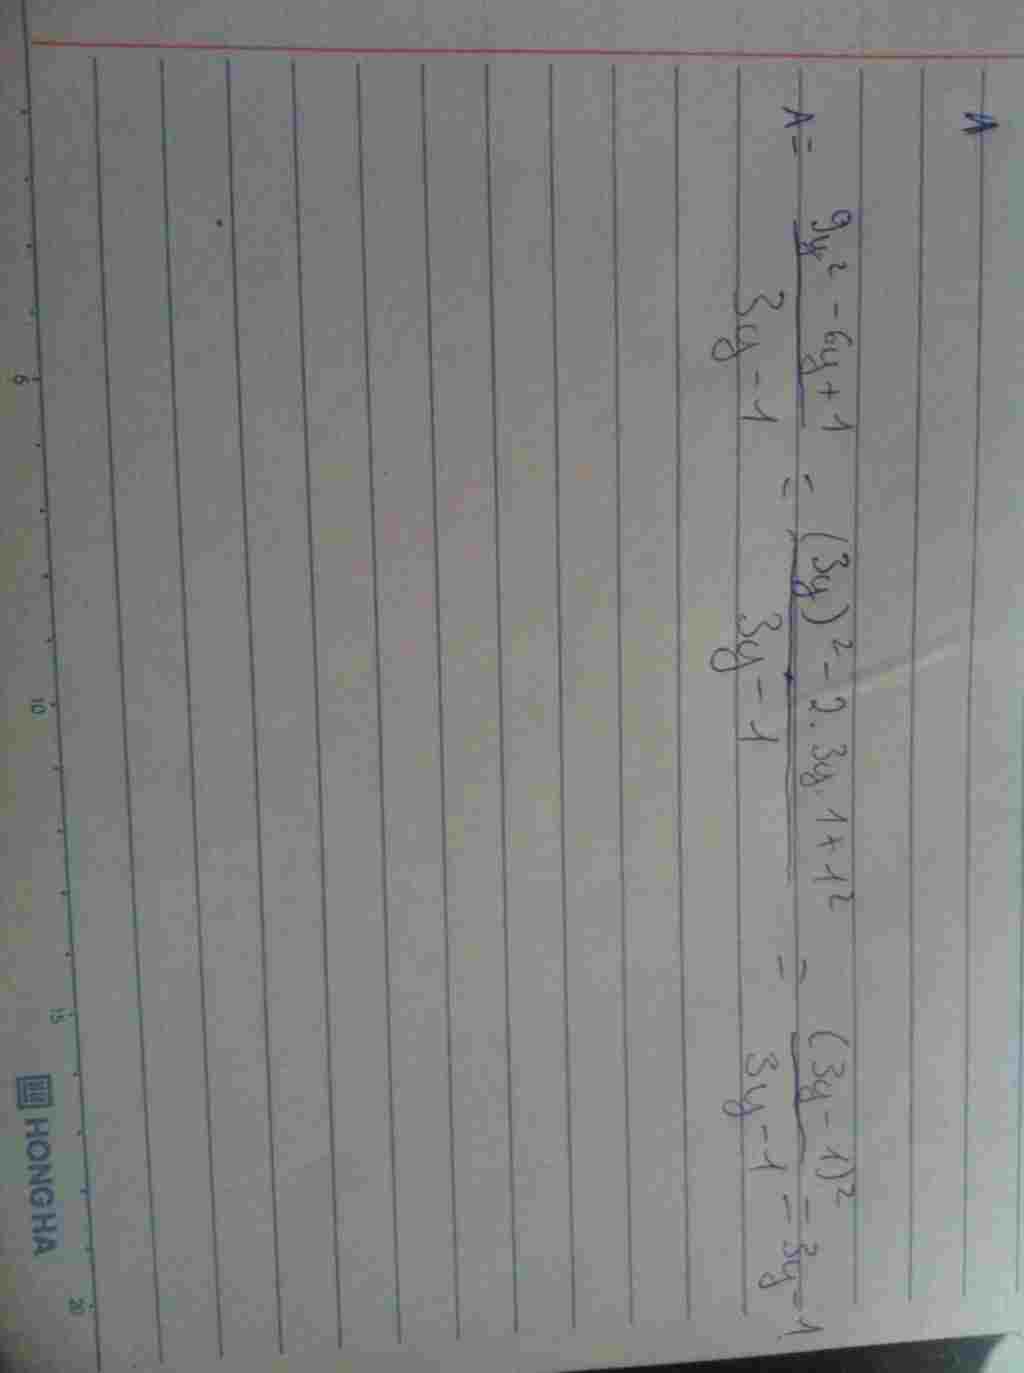 A
A = \frac{9y^2 - 6y + 1}{3y - 1} = \frac{(3y)^2 - 2.3y.1 + 1^2}{3y - 1} = \frac{(3y - 1)^2}{3y - 1} = 3y - 1
6 10 15 20
HONG HA